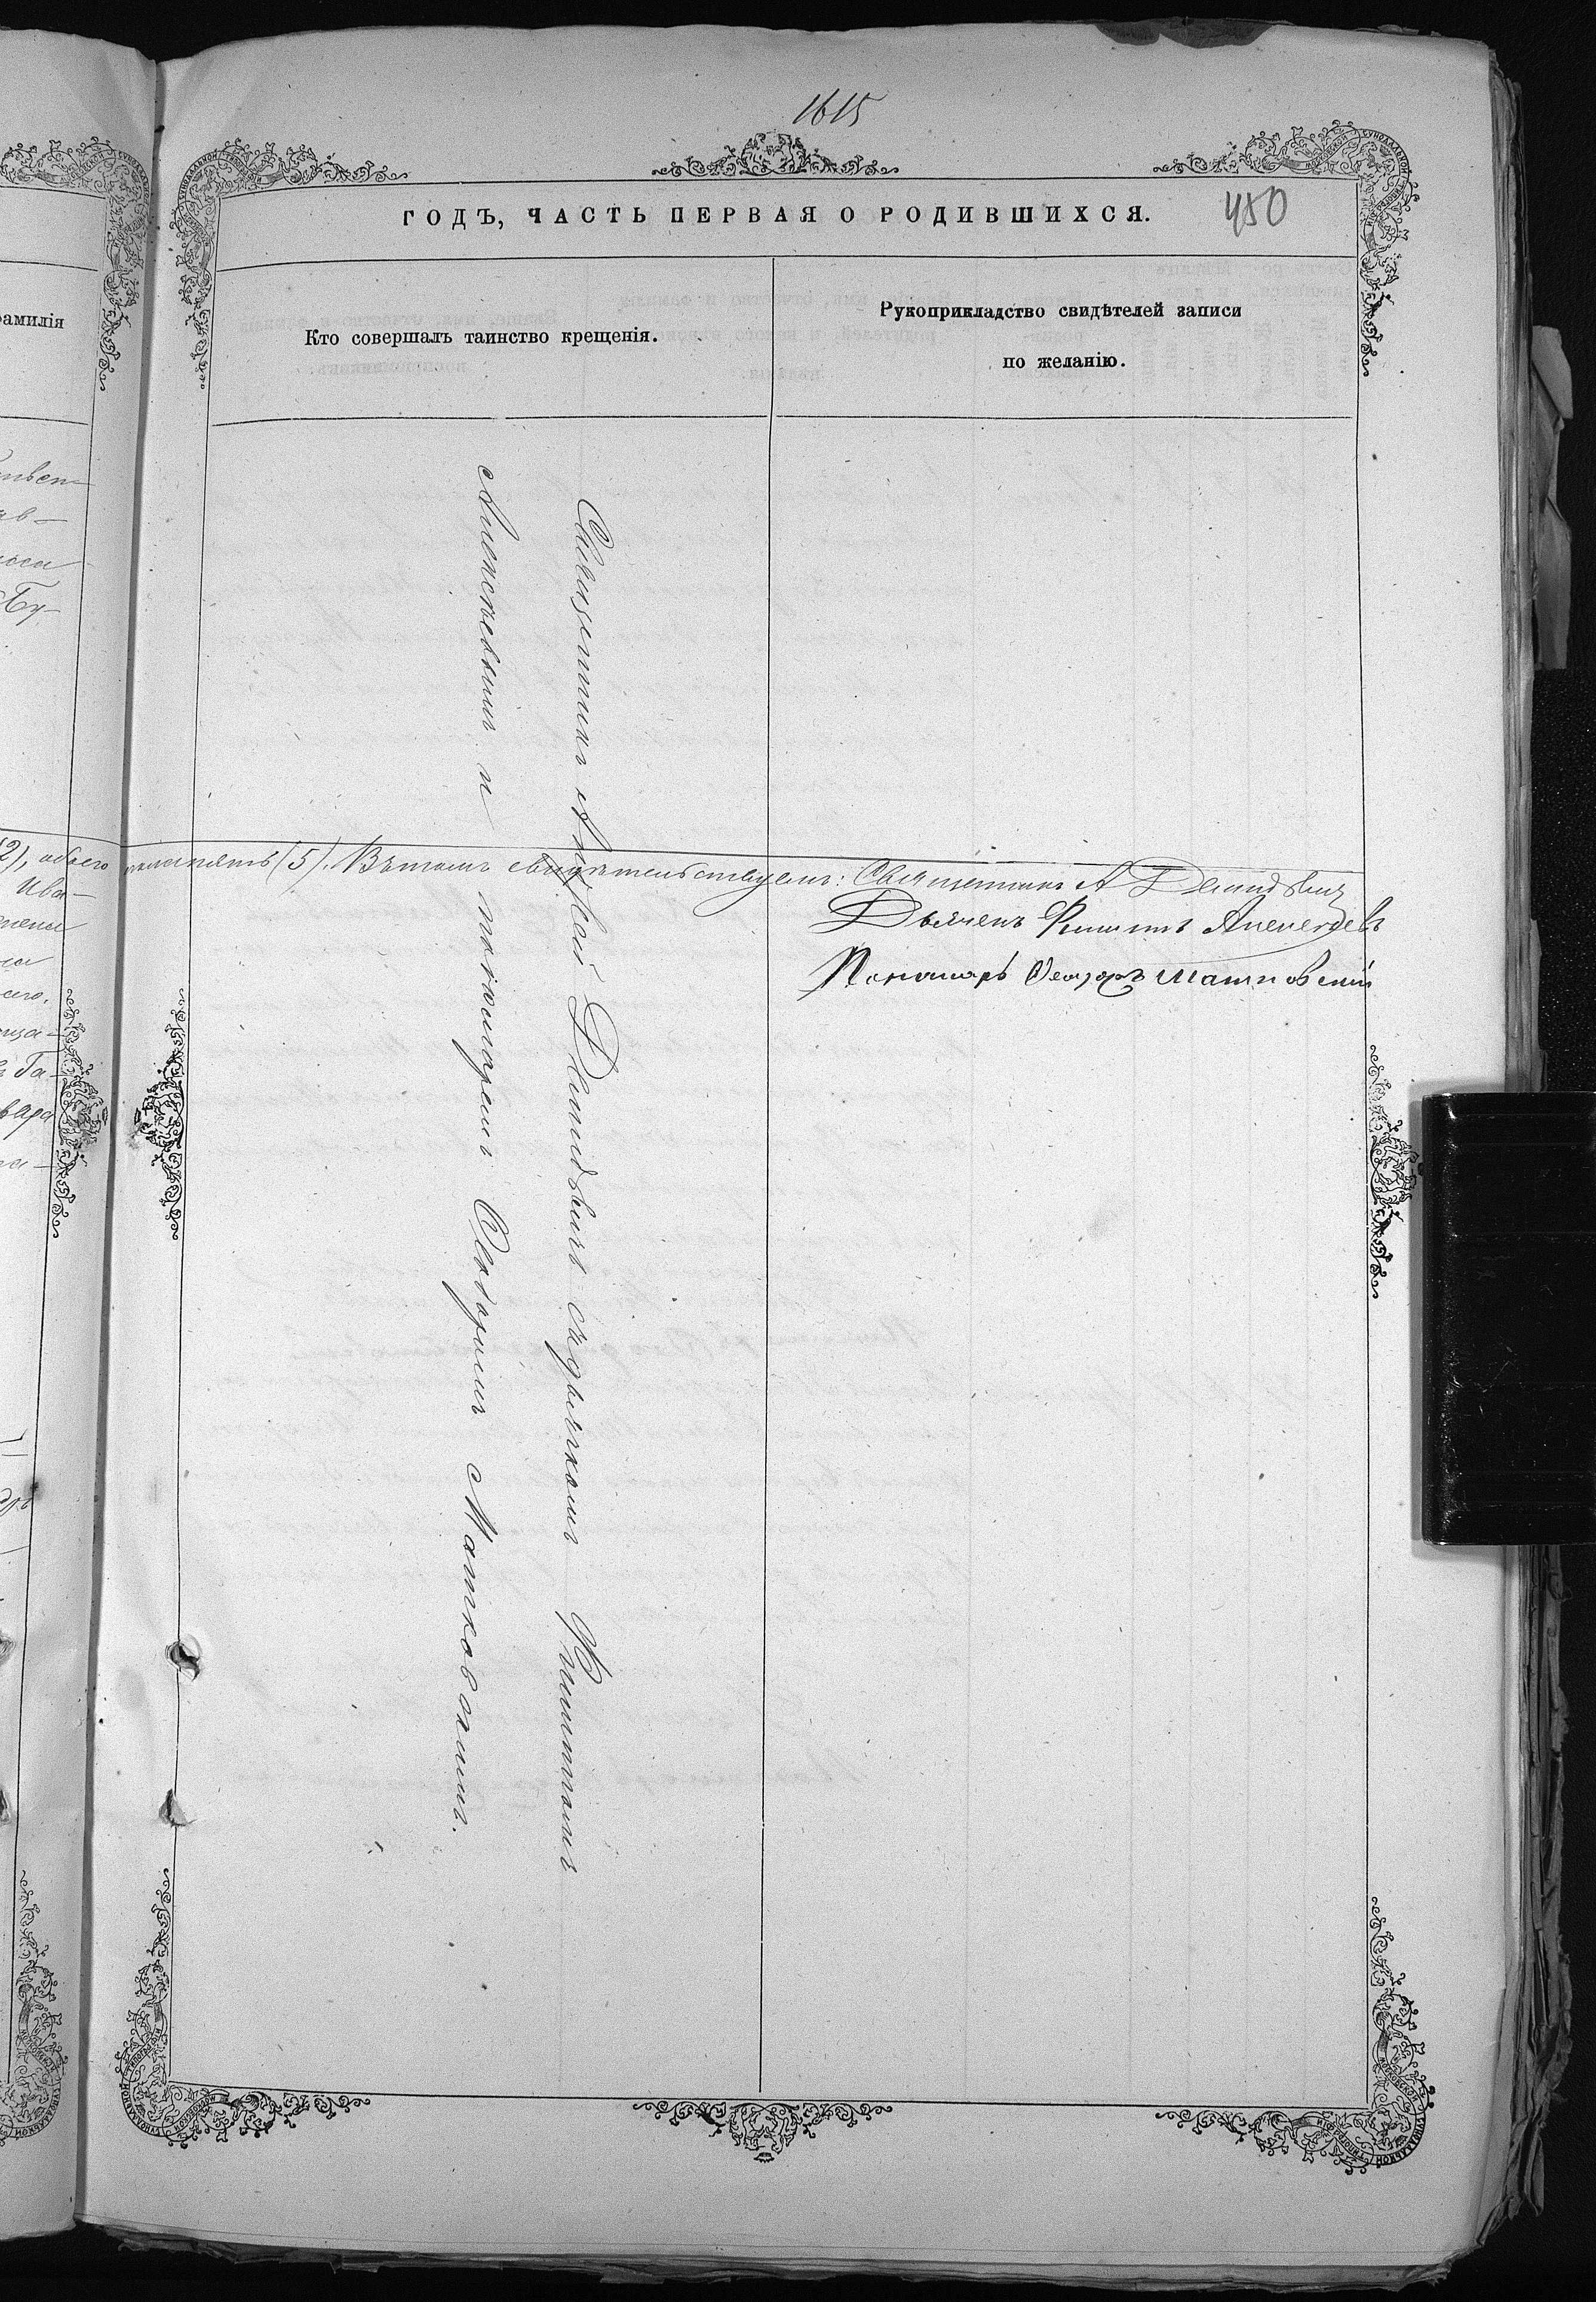 1615
ГОДЪ, ЧАСТЬ ПЕРВАЯ О РОДИВШИХСЯ.
450
амилія
Кто совершалъ таинство крещенія.
Рукоприкладство свидѣтелей записи
по желанію.
Священникъ Андрей Демидовичъ съ дьячкомъ Филиппомъ
Алексѣевымъ и пономаремъ Ѳеодоромъ Матковскимъ.
2), обоего пола пять (5). Въ томъ свидѣтельствуемъ: Священникъ А Демидовичъ
Дьячекъ Филиппъ Алексѣевъ
Пономарь Ѳеодоръ Матковскій